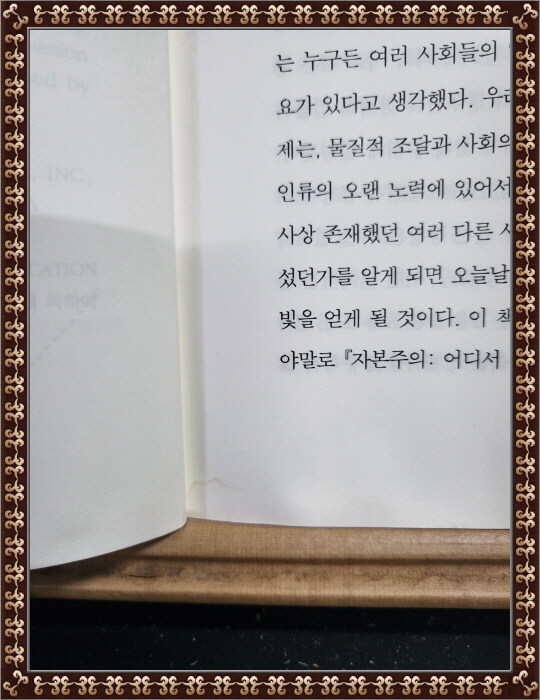 INC.
는 누구든 여러 사회들의
요가 있다고 생각했다. 우리
제는, 물질적 조달과 사회의
인류의 오랜 노력에 있어서
사상 존재했던 여러 다른
섰던가를 알게 되면 오늘날
빛을 얻게 될 것이다. 이 책
야말로 『자본주의: 어디서